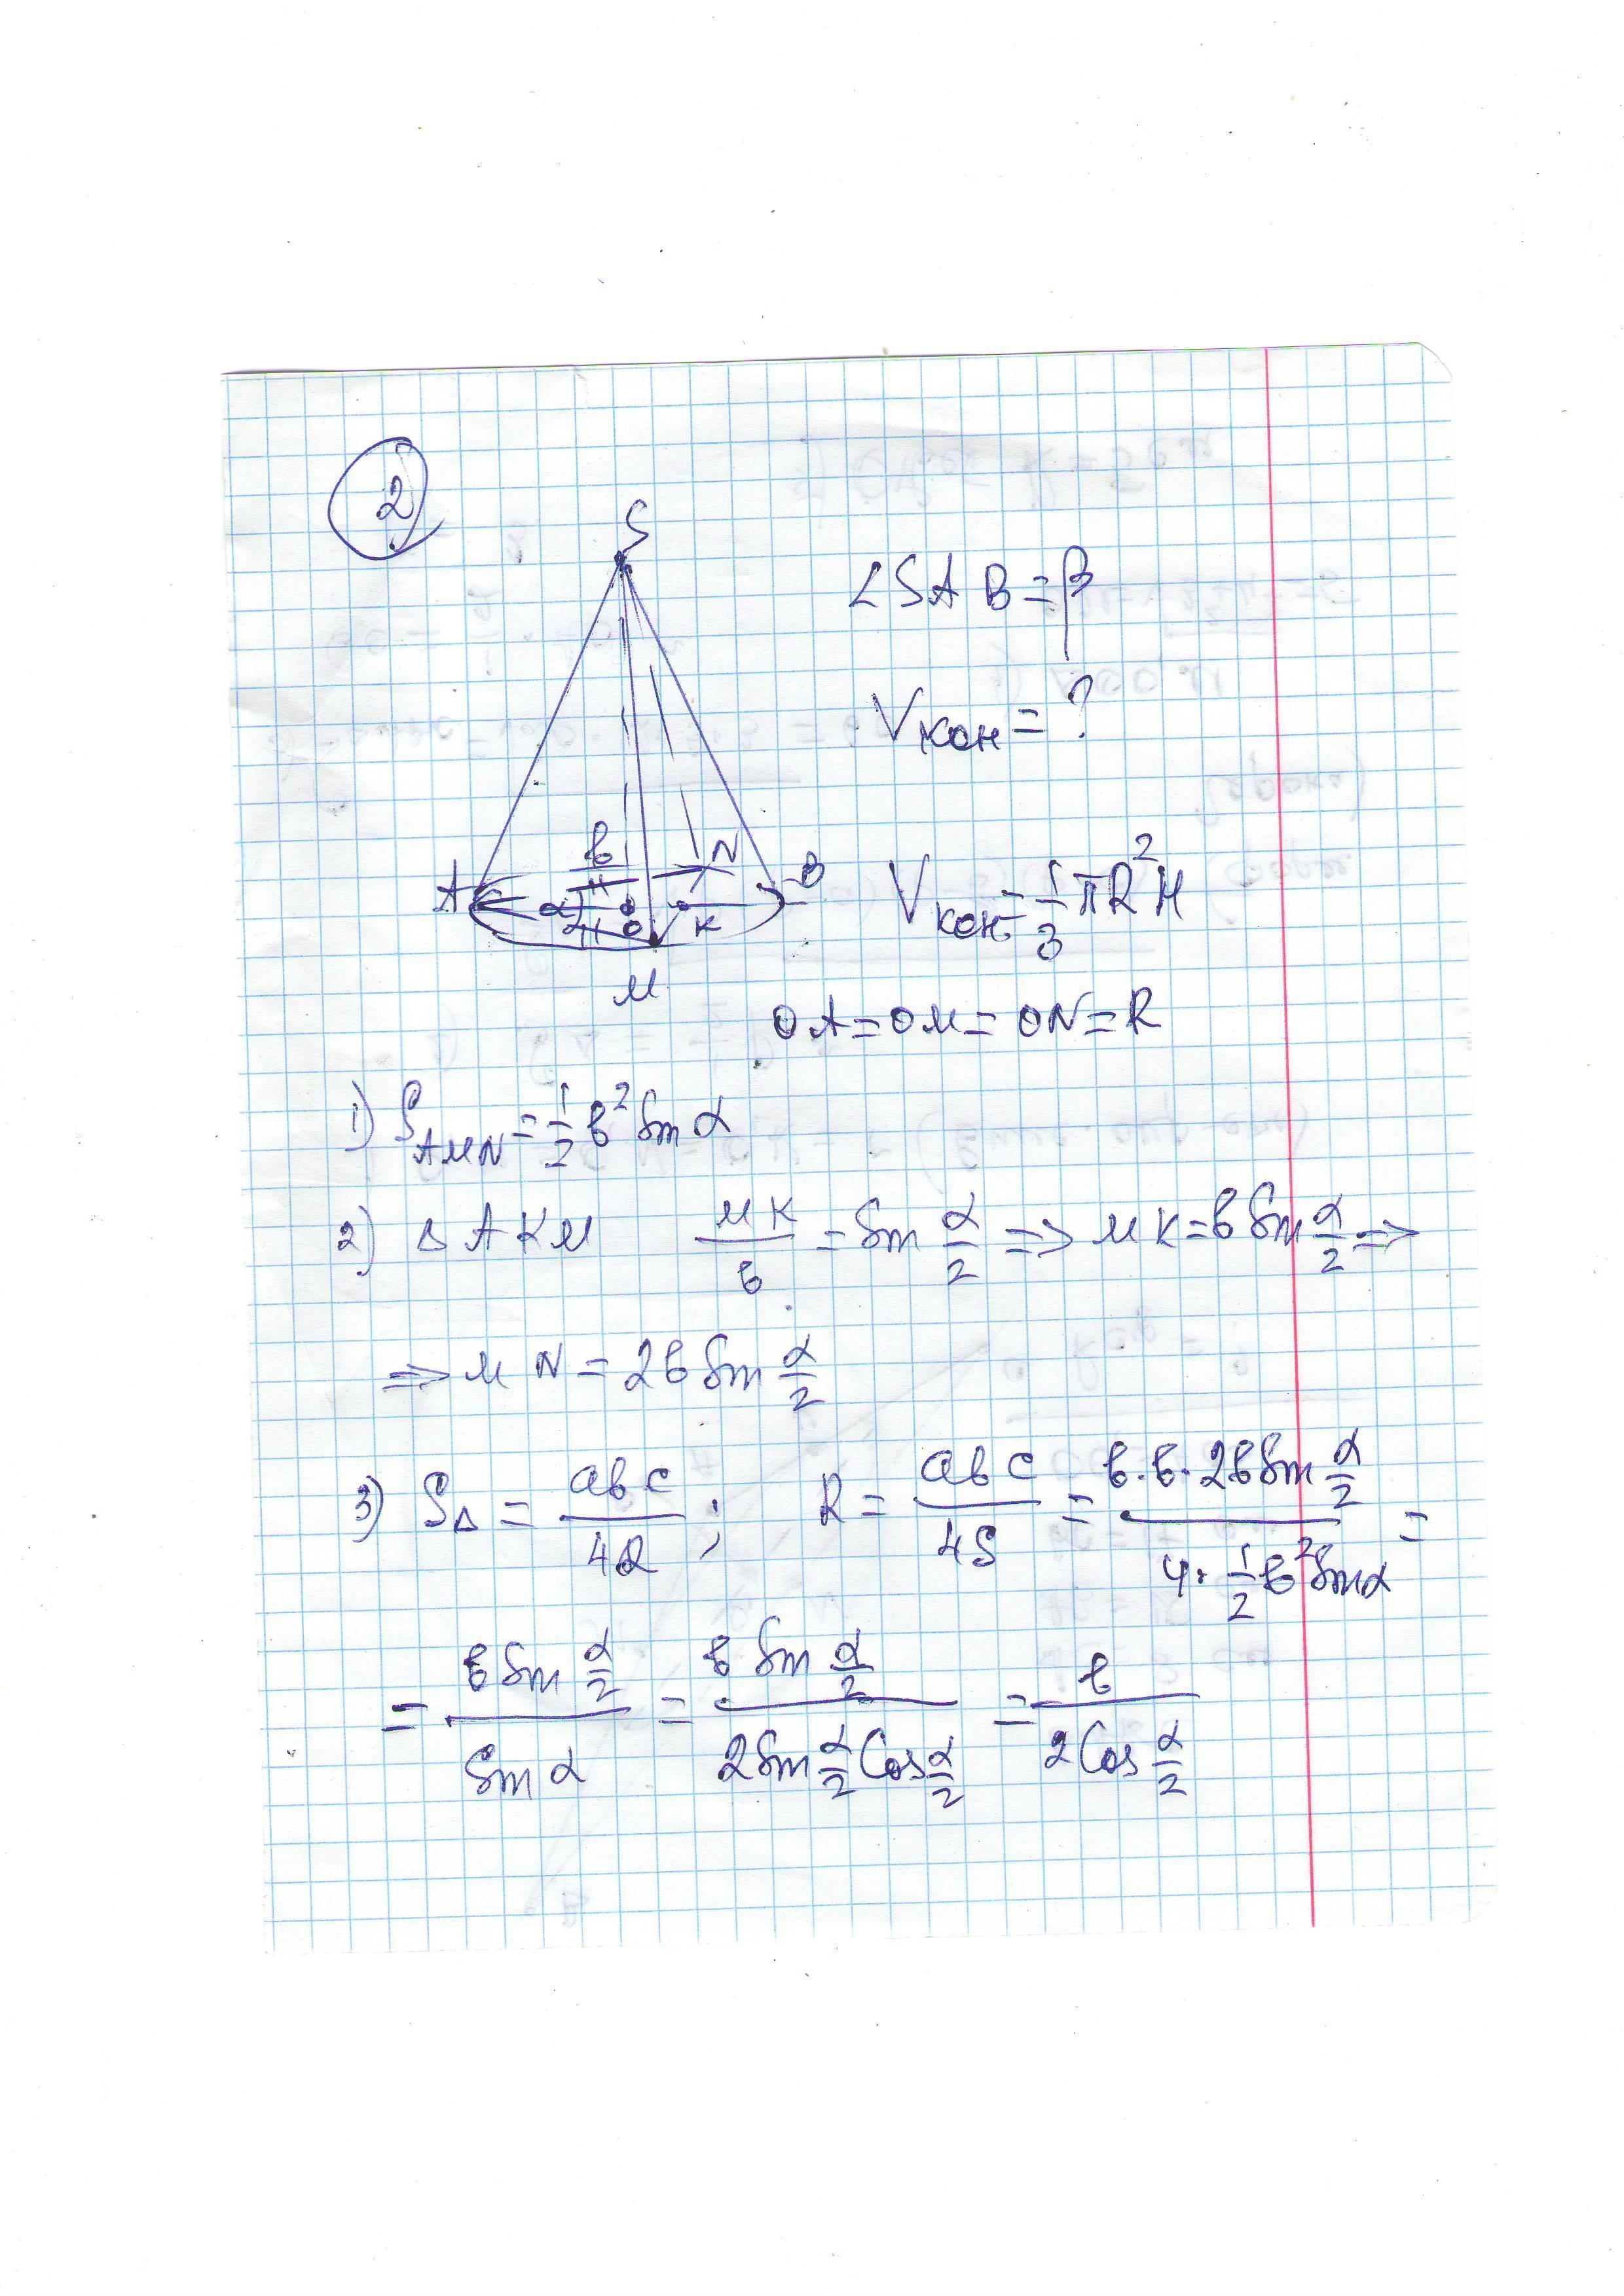 2
S
∠SAB=β
Vкон=?
A в N B
α O K
M
Vкон=1/3 πR²H
OA=OM=ON=R
1) S_AMN=1/2 в² Sin α
2) Δ AKM MK/в = Sin α/2 => MK=вSin α/2 =>
=> MN=2в Sin α/2
3) S_Δ = abc/4R ; R= abc/4S = в·в·2вSin α/2 / 4·1/2 в² Sin α =
= в Sin α/2 / Sin α = в Sin α/2 / 2Sin α/2 Cos α/2 = в / 2Cos α/2